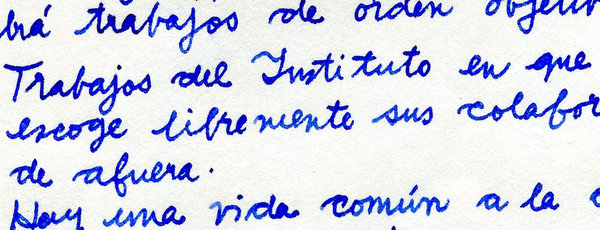 brá trabajos de orden objetiv
Trabajos del Instituto en que
escoge libremente sus colabor
de afuera.
Hay una vida común a la